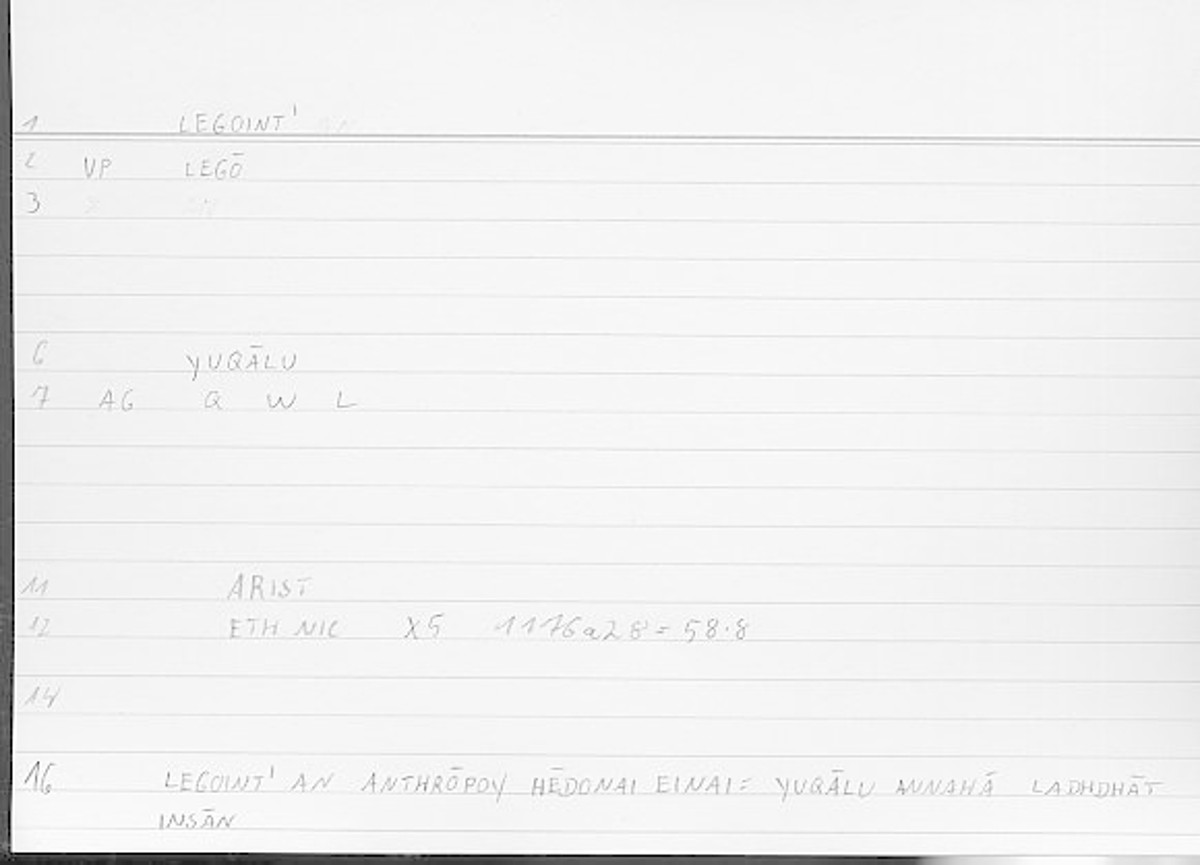 1 LEGOINT'
2 VP LEGŌ
3
6 YUQĀLU
7 AG Q W L
11 ARIST
12 ETH NIC X5 1176a28=58.8
14
16 LEGOINT' AN ANTHRŌPOY HĒDONAI EINAI= YUQĀLU ANNAHĀ LADHDHĀT
INSĀN